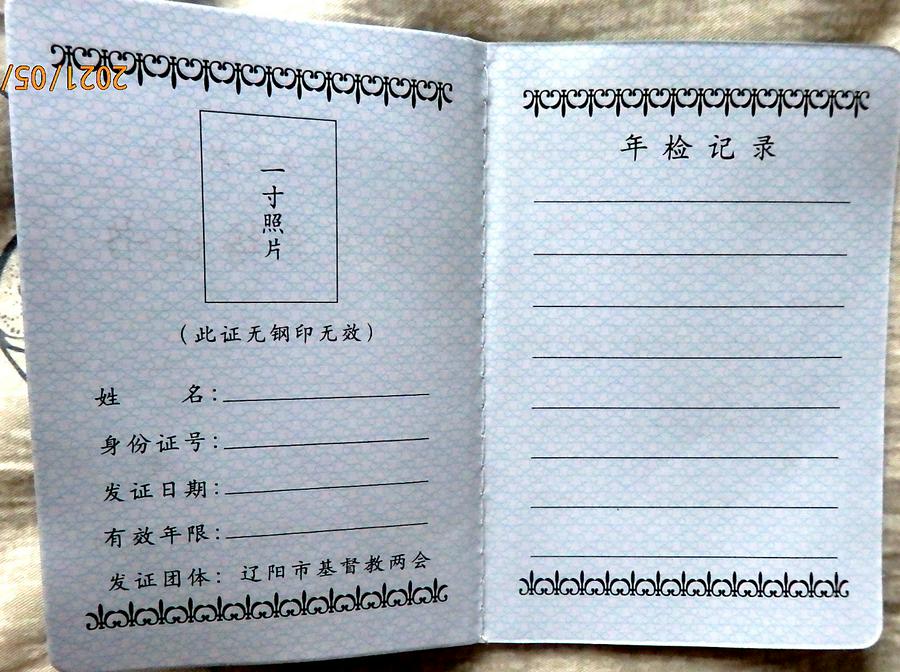 2021/05/
一寸照片
(此证无钢印无效)
姓 名:
身份证号:
发证日期:
有效年限:
发证团体: 辽阳市基督教两会
年检记录